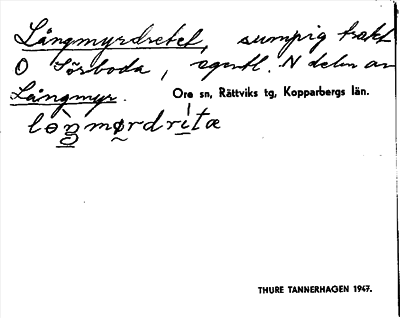 Långmyrdretet, sumpig trakt
O Sörboda, egentl. N delen av
Långmyr. Ore sn, Rättviks tg, Kopparbergs län.
THURE TANNERHAGEN 1947.